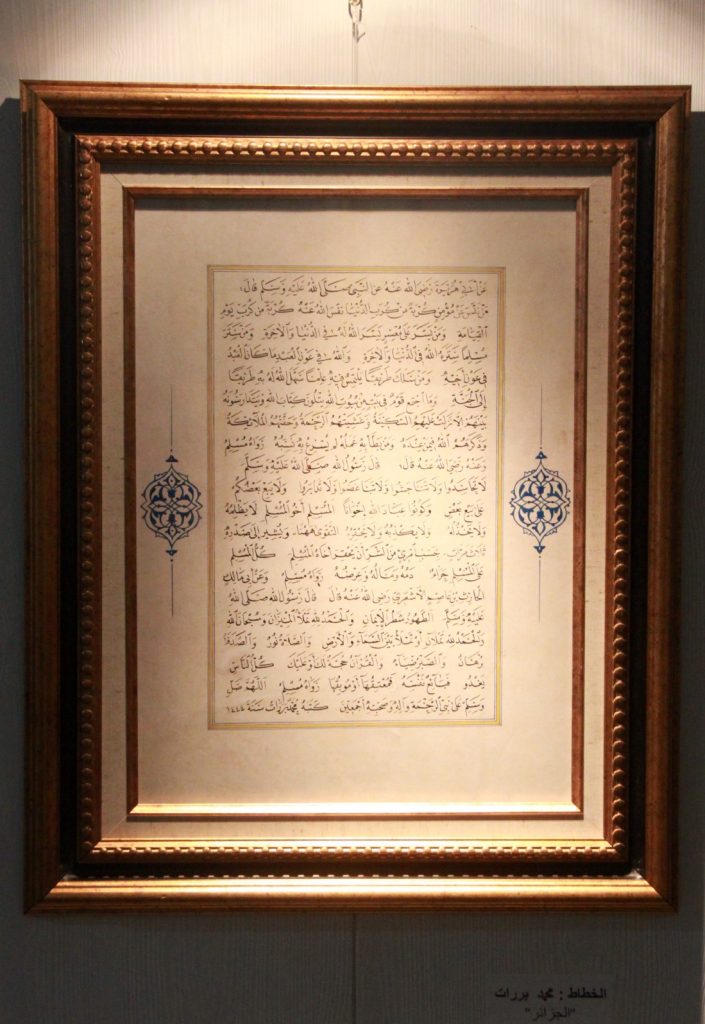 عَنْ أَبِي هُرَيْرَةَ رَضِيَ اللهُ عَنْهُ عَنِ النَّبِيِّ صَلَّى اللهُ عَلَيْهِ وَسَلَّمَ قَالَ:
مَنْ نَفَّسَ عَنْ مُؤْمِنٍ كُرْبَةً مِنْ كُرَبِ الدُّنْيَا نَفَّسَ اللهُ عَنْهُ كُرْبَةً مِنْ كُرَبِ يَوْمِ
القِيَامَةِ وَمَنْ يَسَّرَ عَلَى مُعْسِرٍ يَسَّرَ اللهُ لَهُ فِي الدُّنْيَا وَالآخِرَةِ وَمَنْ سَتَرَ
مُسْلِمًا سَتَرَهُ اللهُ فِي الدُّنْيَا وَالآخِرَةِ وَاللهُ فِي عَوْنِ العَبْدِ مَا كَانَ العَبْدُ
فِي عَوْنِ أَخِيهِ وَمَنْ سَلَكَ طَرِيقًا يَلْتَمِسُ فِيهِ عِلْمًا سَهَّلَ اللهُ لَهُ بِهِ طَرِيقًا
إِلَى الجَنَّةِ وَمَا اجْتَمَعَ قَوْمٌ فِي بَيْتٍ مِنْ بُيُوتِ اللهِ يَتْلُونَ كِتَابَ اللهِ وَيَتَدَارَسُونَهُ
بَيْنَهُمْ إِلَّا نَزَلَتْ عَلَيْهِمُ السَّكِينَةُ وَغَشِيَتْهُمُ الرَّحْمَةُ وَحَفَّتْهُمُ المَلَائِكَةُ
وَذَكَرَهُمُ اللهُ فِيمَنْ عِنْدَهُ وَمَنْ بَطَّأَ بِهِ عَمَلُهُ لَمْ يُسْرِعْ بِهِ نَسَبُهُ رَوَاهُ مُسْلِمٌ
وَعَنْهُ رَضِيَ اللهُ عَنْهُ قَالَ: قَالَ رَسُولُ اللهِ صَلَّى اللهُ عَلَيْهِ وَسَلَّمَ
لَا تَحَاسَدُوا وَلَا تَنَاجَشُوا وَلَا تَبَاغَضُوا وَلَا تَدَابَرُوا وَلَا يَبِعْ بَعْضُكُمْ
عَلَى بَيْعِ بَعْضٍ وَكُونُوا عِبَادَ اللهِ إِخْوَانًا المُسْلِمُ أَخُو المُسْلِمِ لَا يَظْلِمُهُ
وَلَا يَخْذُلُهُ وَلَا يَكْذِبُهُ وَلَا يَحْقِرُهُ التَّقْوَى هَهُنَا وَيُشِيرُ إِلَى صَدْرِهِ
ثَلَاثَ مَرَّاتٍ بِحَسْبِ امْرِئٍ مِنَ الشَّرِّ أَنْ يَحْقِرَ أَخَاهُ المُسْلِمَ كُلُّ المُسْلِمِ
عَلَى المُسْلِمِ حَرَامٌ دَمُهُ وَمَالُهُ وَعِرْضُهُ رَوَاهُ مُسْلِمٌ وَعَنْ أَبِي مَالِكٍ
الحَارِثِ بْنِ عَاصِمٍ الأَشْعَرِيِّ رَضِيَ اللهُ عَنْهُ قَالَ قَالَ رَسُولُ اللهِ صَلَّى اللهُ
عَلَيْهِ وَسَلَّمَ الطَّهُورُ شَطْرُ الإِيمَانِ وَالحَمْدُ لِلهِ تَمْلَأُ المِيزَانَ وَسُبْحَانَ اللهِ
وَالحَمْدُ لِلهِ تَمْلَآنِ أَوْ تَمْلَأُ مَا بَيْنَ السَّمَاءِ وَالأَرْضِ وَالصَّلَاةُ نُورٌ وَالصَّدَقَةُ
بُرْهَانٌ وَالصَّبْرُ ضِيَاءٌ وَالقُرْآنُ حُجَّةٌ لَكَ أَوْ عَلَيْكَ كُلُّ النَّاسِ
يَغْدُو فَبَائِعٌ نَفْسَهُ فَمُعْتِقُهَا أَوْ مُوبِقُهَا رَوَاهُ مُسْلِمٌ اللَّهُمَّ صَلِّ
وَسَلِّمْ عَلَى نَبِيِّ الرَّحْمَةِ وَآلِهِ وَصَحْبِهِ أَجْمَعِينَ كَتَبَهُ مُحَمَّد بررات سَنَةَ ١٤٤٤
الخطاط : محمد بررات
"الجزائر"